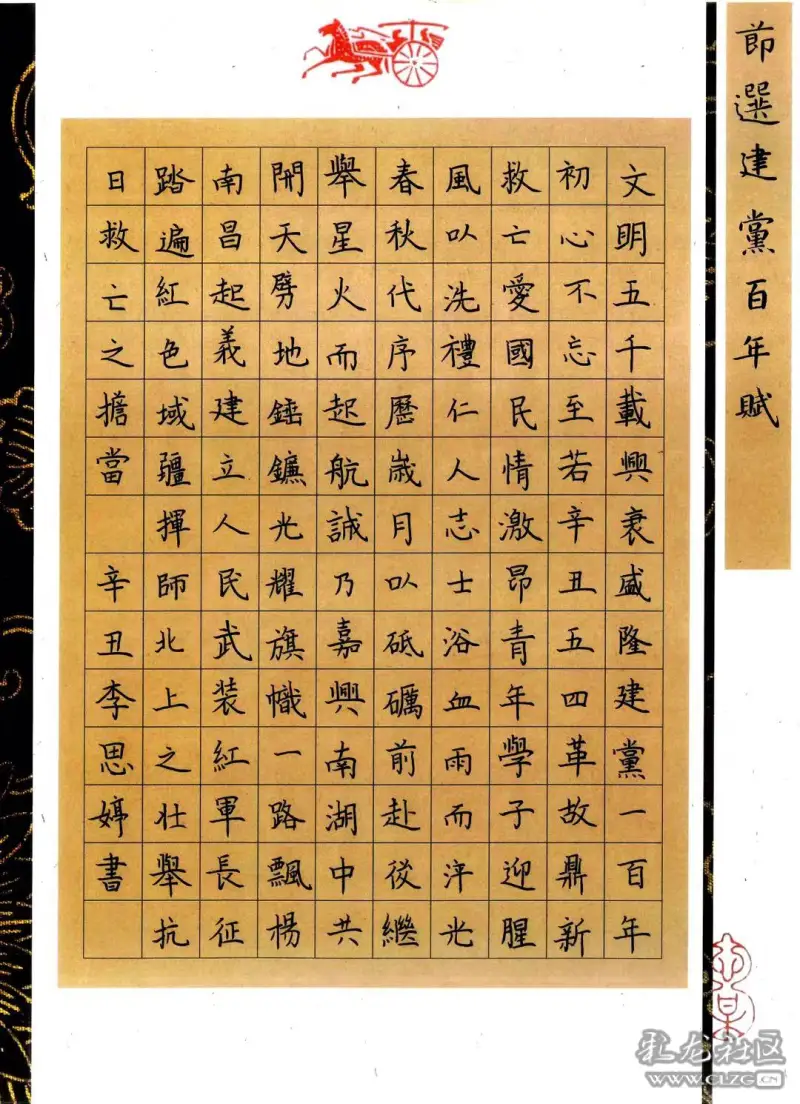 節選建黨百年賦
文明五千載興衰盛隆建黨一百年
初心不忘至若辛丑五四革故鼎新
救亡愛國民情激昂青年學子迎腥
風以洗禮仁人志士浴血雨而淬光
春秋代序歷歲月以砥礪前赴從繼
舉星火而起航誠乃嘉興南湖中共
開天劈地錘鐮光耀旗幟一路飄楊
南昌起義建立人民武装紅軍長征
踏遍紅色域疆揮師北上之壮舉抗
日救亡之擔當
辛丑李思婷書
乳龙社区
www.CLZG.CN